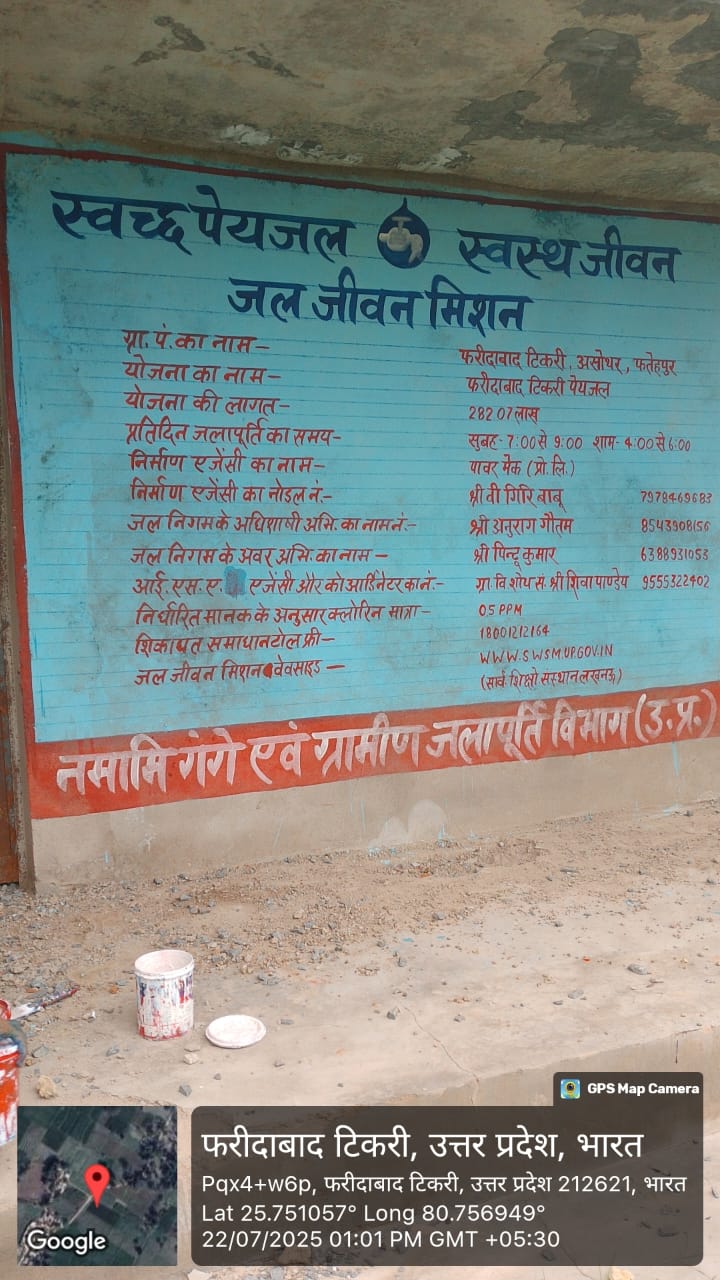 स्वच्छ पेयजल स्वस्थ जीवन
जल जीवन मिशन
ग्रा. पं. का नाम– फरीदाबाद टिकरी, असोथर, फतेहपुर
योजना का नाम– फरीदाबाद टिकरी पेयजल
योजना की लागत– 282.07 लाख
प्रतिदिन जलापूर्ति का समय– सुबह- 7:00 से 9:00 शाम- 4:00 से 6:00
निर्माण एजेंसी का नाम– पावर मेक (प्रो. लि.)
निर्माण एजेंसी का नोडल नं:– श्री वी गिरि बाबू 7978469683
जल निगम के अधिशाषी अभि. का नाम नं:– श्री अनुराग गौतम 8543908156
जल निगम के अवर अभि. का नाम – श्री पिन्टू कुमार 6388931053
आई. एस. ए. एजेंसी और कोआर्डिनेटर का नं:– ग्रा. वि शोध सं. श्री शिवा पाण्डेय 9555322402
निर्धारित मानक के अनुसार क्लोरिन मात्रा– 0.5 PPM
शिकायत समाधान टोल फ्री– 18001212164
जल जीवन मिशन वेवसाइड – WWW.SWSM.UP.GOV.IN
संस्थान लखनऊ)
नमामि गंगे एवं ग्रामीण जलापूर्ति विभाग (उ.प्र.)
GPS Map Camera
फरीदाबाद टिकरी, उत्तर प्रदेश, भारत
Pqx4+w6p, फरीदाबाद टिकरी, उत्तर प्रदेश 212621, भारत
Lat 25.751057° Long 80.756949°
22/07/2025 01:01 PM GMT +05:30
Google